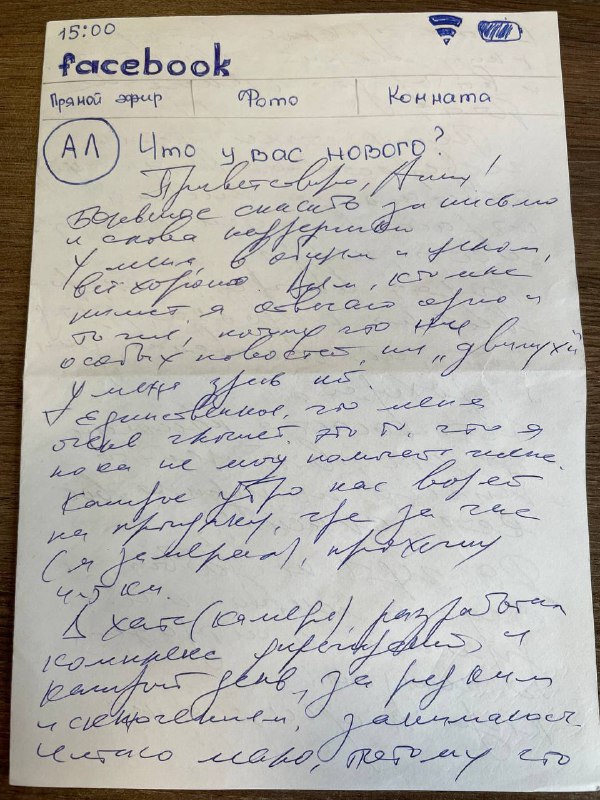 15:00
facebook
Прямой эфир Фото Комната
АЛ Что у вас нового?
Приветствую,
Большое спасибо за письмо
и слова поддержки
У меня, в общем и целом,
всё хорошо. Всем, кто мне
пишет, я отвечаю одно и
то же, потому что ни
особых новостей, ни „движухи"
у меня здесь нет.
Единственное, что меня
очень это то, что я
пока не могу
Каждое утро нас водят
на прогулку, где за час
(я замерял), прохожу
4-5 км.
В хате (камере), разработал
комплекс упражнений и
каждый день, за редким
исключением, занимаюсь.
Читаю мало, потому что